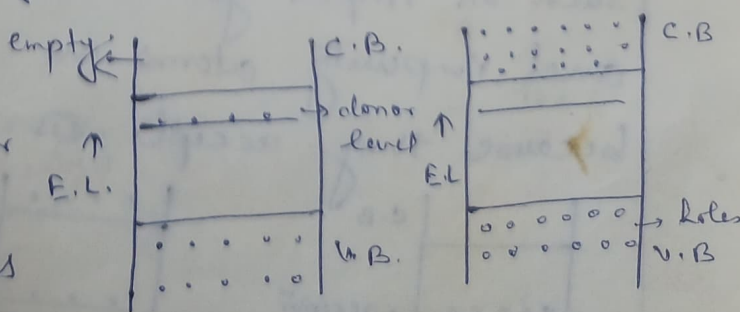 empty
C.B.
donor
level
E.L.
V.B.
C.B
E.L
holes
V.B